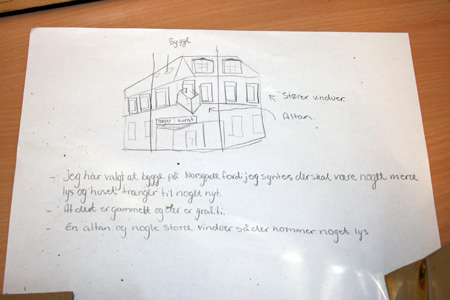 Byggl
Større vinduer
Altan
kunst
- Jeg har valgt at byggl på Norsgade fordi jeg syntes der skal være noglt merce
lys og huset trænger til noglt nyt.
- At det er gammelt og der er grafiti.
- En altan og nogle store vinduer så der kommer noget lys